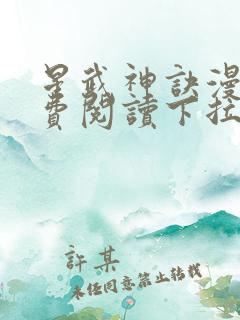 星武神訣漫
費閱讀下拉
許某
未經同意禁止轉載